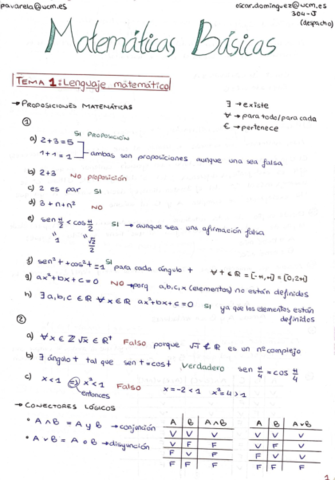 pavarela@ucm.es
oscar.dominguez@ucm.es
304-J
(despacho)
Matemáticas Básicas
TEMA 1: Lenguaje matemático
→ PROPOSICIONES MATEMÁTICAS
∃ → existe
∀ → para todo/para cada
∈ → pertenece
①
a) 2+3=5 SI PROPOSICIÓN
1+1=1 ambas son proposiciones aunque una sea falsa
b) 2+3 NO proposición
c) 2 es par SI
d) 3+n=n² NO
e) sen π/2 < cos π/2 SI → aunque sea una afirmación falsa
f) sen²t + cos²t = 1 SI para cada ángulo t ∀ t ∈ ℝ = [-π,π] = [0,2π]
g) ax²+bx+c=0 NO → porq a,b,c,x (elementos) no están definidos
h) ∃ a,b,c ∈ ℝ ∀ x ∈ ℝ ax²+bx+c=0 SI ya que los elementos están definidos
②
a) ∀ x ∈ ℤ √x ∈ ℝ Falso porque ∉ ℝ es un nº complejo
b) ∃ ángulo t tal que sen t = cos t Verdadero sen π/4 = cos π/4
c) x<1 ⇒ x²<1 Falso x=-2<1 x²=4>1
entonces
→ CONECTORES LÓGICOS
• A ∧ B = A y B → conjunción
• A ∨ B = A o B → disyunción
A B A∧B
V V V
V F F
F V F
F F F
A B A∨B
V V V
V F V
F V V
F F F